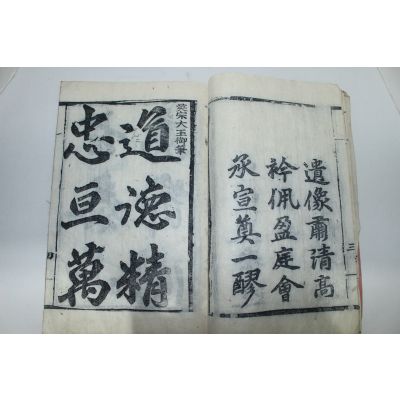 遺像肅清高
衿佩盈庭會
承宣奠一醪
宗大王御筆
道德精
忠亘萬
三